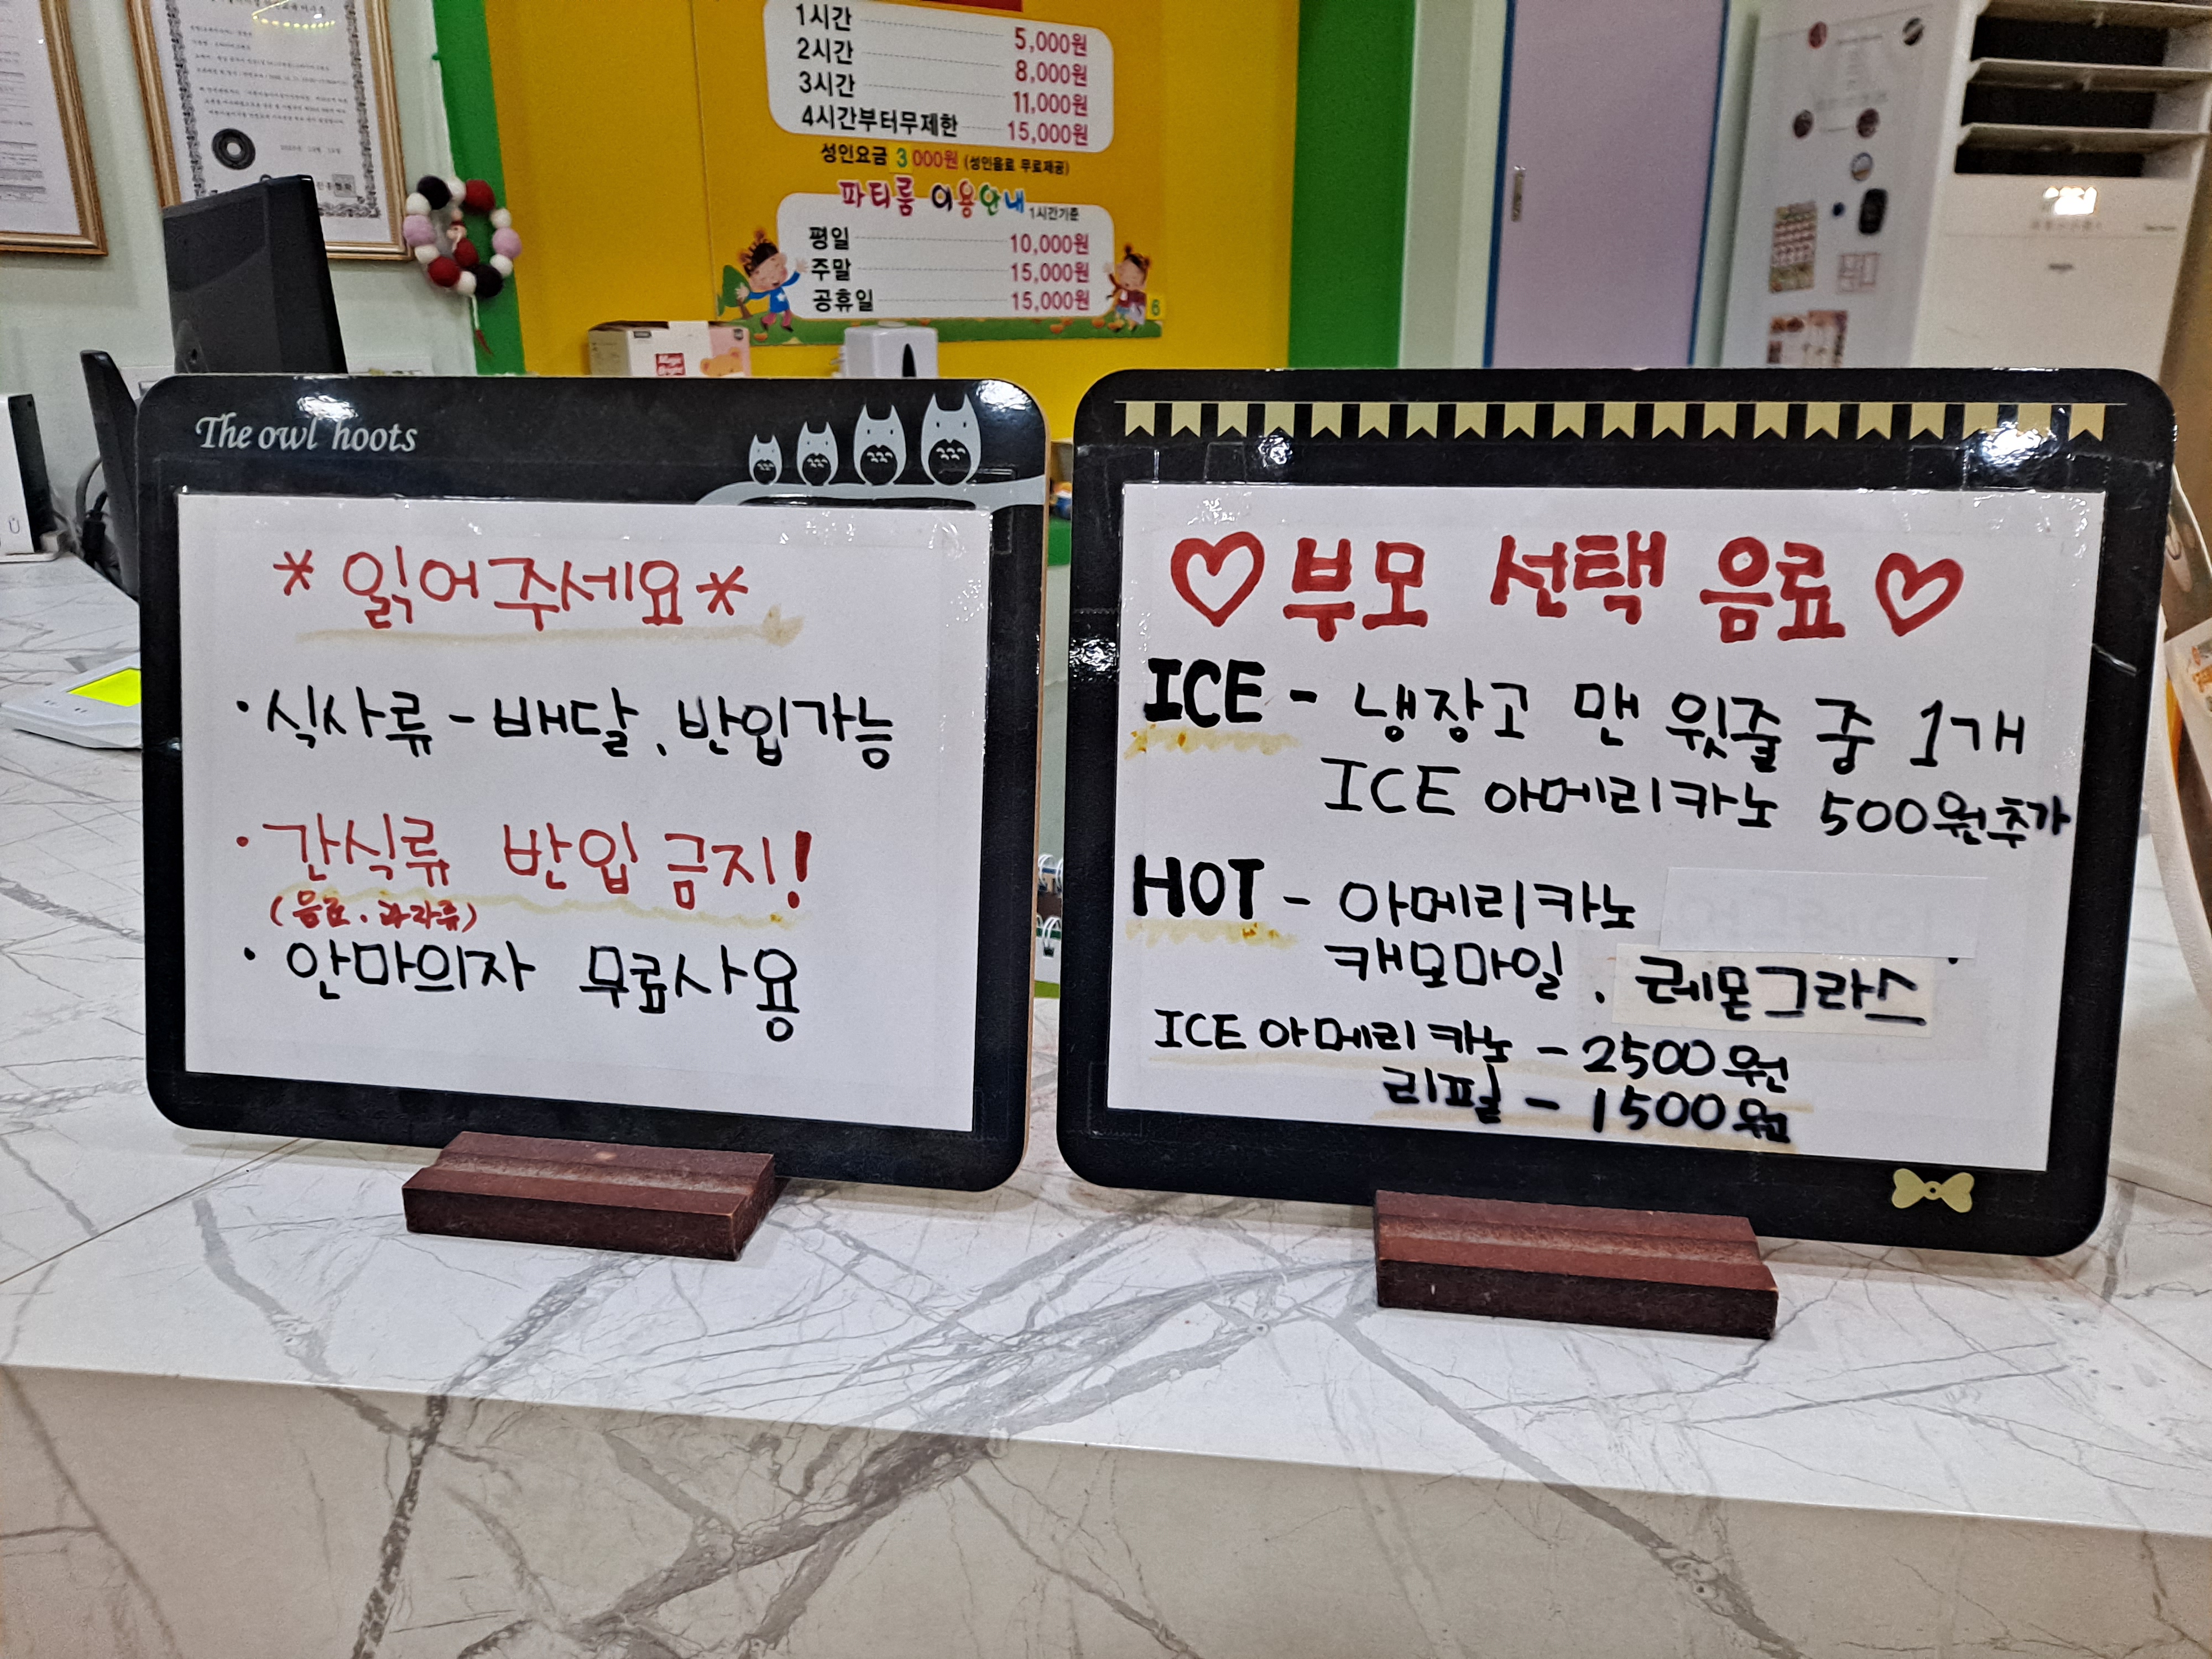 1시간 5,000원
2시간 8,000원
3시간 11,000원
4시간부터무제한 15,000원
성인요금 3000원 (성인음료 무료제공)
파티룸 이용안내 1시간기준
평일 10,000원
주말 15,000원
공휴일 15,000원
6
The owl hoots
* 읽어주세요 *
· 식사류 - 배달, 반입가능
· 간식류 반입 금지!
(음료, 과자류)
· 안마의자 무료사용
♡ 부모 선택 음료 ♡
ICE - 냉장고 맨 윗줄 중 1개
ICE 아메리카노 500원추가
HOT - 아메리카노
캐모마일, 레몬그라스
ICE 아메리카노 - 2500원
리필 - 1500원